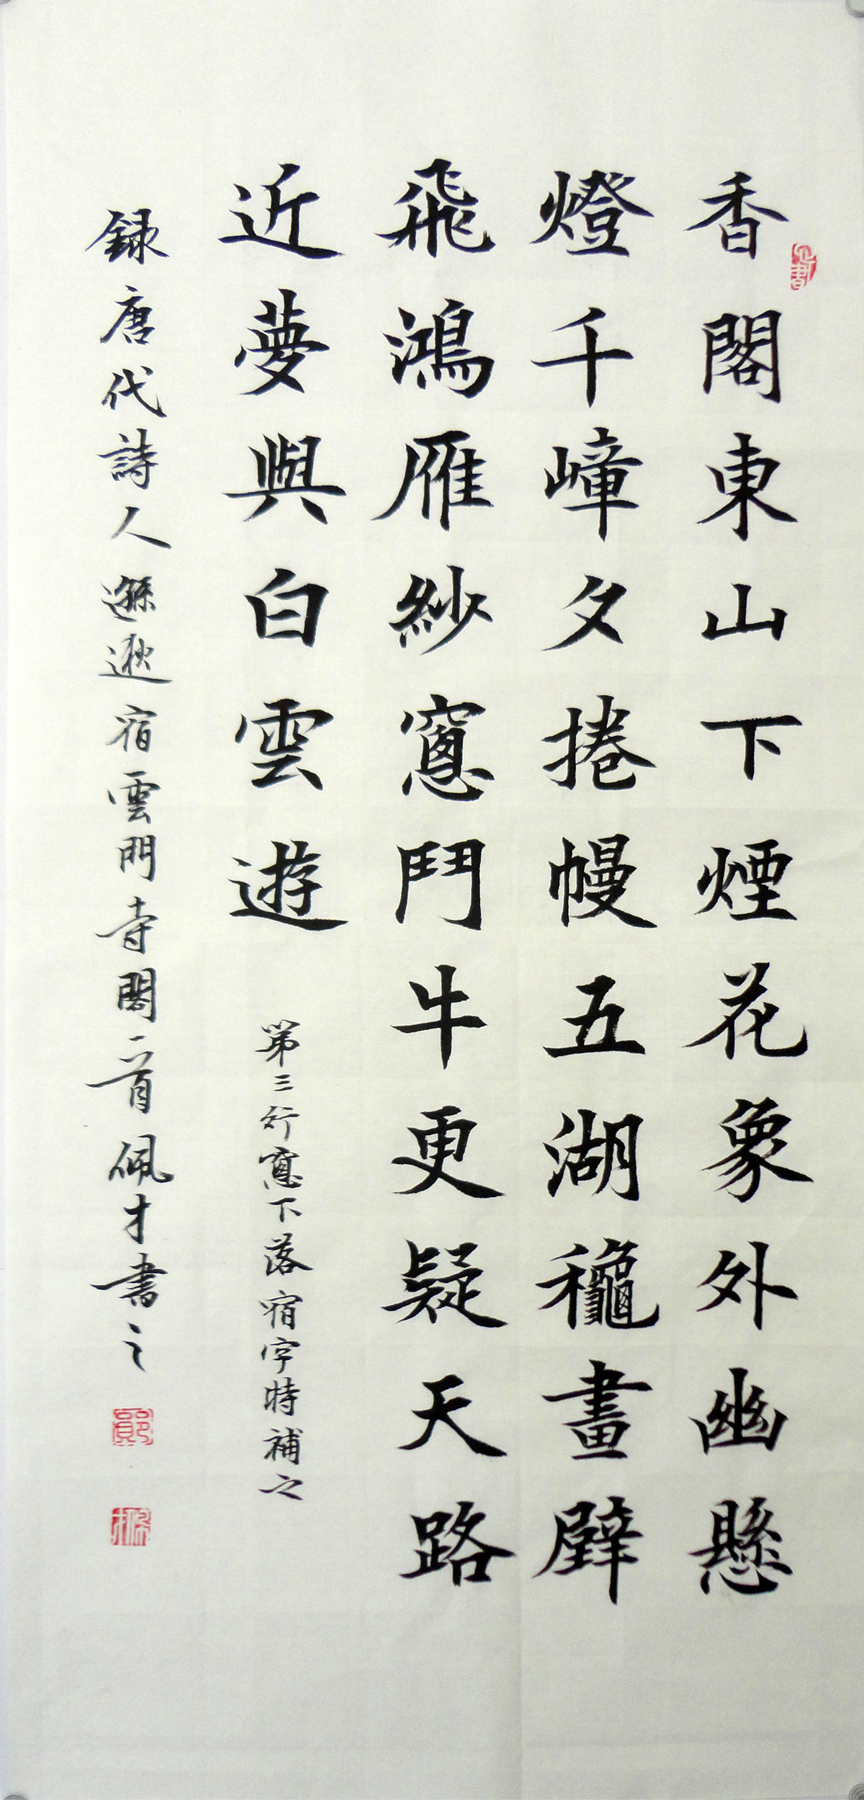 香閣東山下煙花象外幽懸
燈千嶂夕捲幔五湖龝畫壁
飛鴻雁紗窻鬥牛更疑天路
近夢與白雲遊
第三行窻下落宿字特補之
録唐代詩人遜逖宿雲門寺閣一首佩才書之